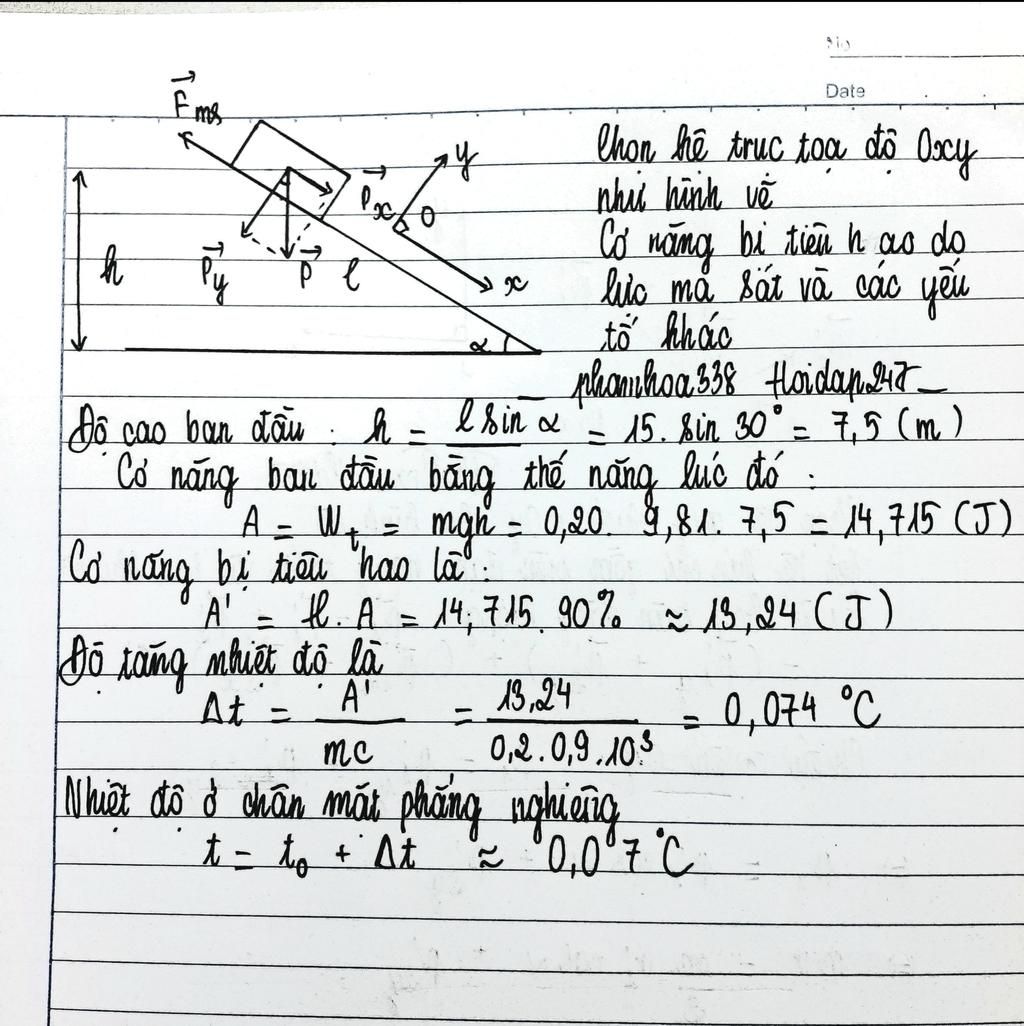 No
Date
F ms
Px
Py
P
h
l
α
y
O
x
Chọn hệ trục tọa độ Oxy
như hình vẽ
Cơ năng bị tiêu hao do
lực ma sát và các yếu
tố khác
phamhoa338 Hoidap247
Độ cao ban đầu : h = l sin α = 15. sin 30° = 7,5 (m)
Cơ năng ban đầu bằng thế năng lúc đó :
A = Wt = mgh = 0,20. 9,81. 7,5 = 14,715 (J)
Cơ năng bị tiêu hao là :
A' = H. A = 14,715. 90% ≈ 13,24 (J)
Độ tăng nhiệt độ là
Δt = A' / mc = 13,24 / 0,2.0,9.10³ = 0,074 °C
Nhiệt độ ở chân mặt phẳng nghiêng
t = t₀ + Δt ≈ 0,07 °C